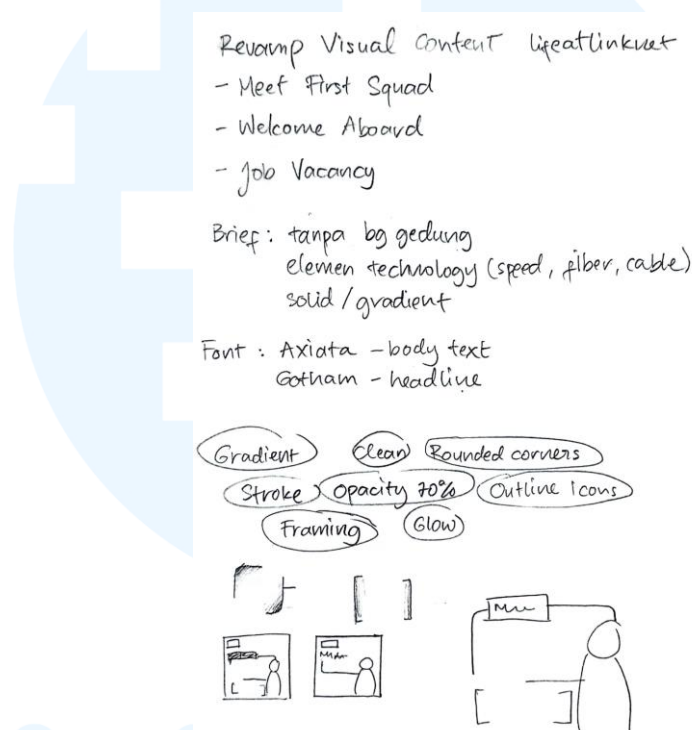 Revamp Visual Content lifeatlinknet
- Meet First Squad
- Welcome Aboard
- Job Vacancy
Brief : tanpa bg gedung
elemen technology (speed, fiber, cable)
solid / gradient
Font : Axiata - body text
Gotham - headline
Gradient Clean Rounded corners
Stroke Opacity 70% Outline Icons
Framing Glow